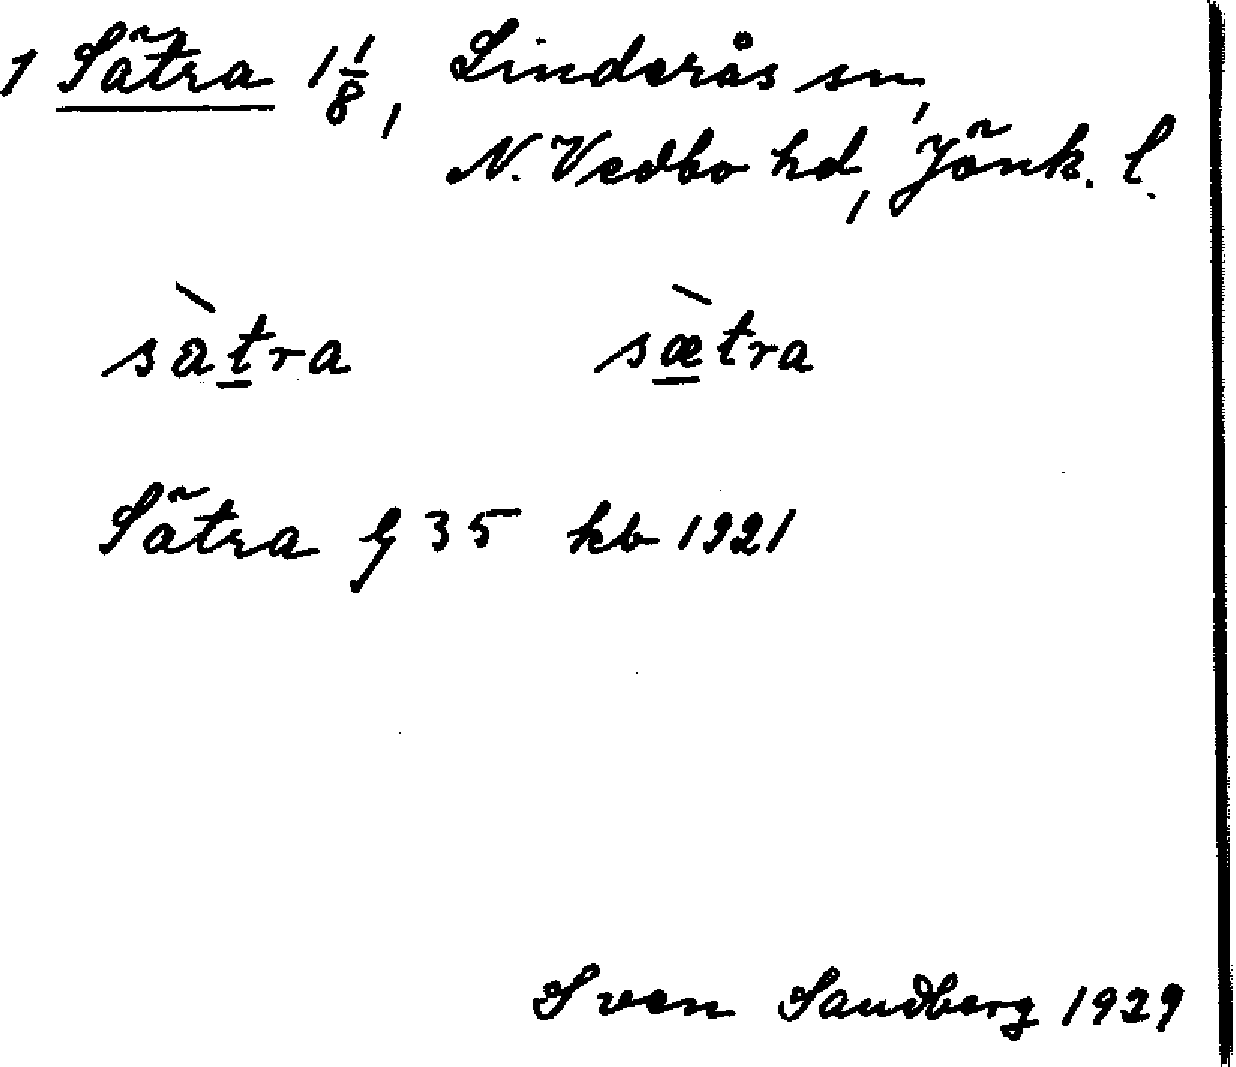 1 Sätra 1 1/8, Linderås sn,
N. Vedbo hd, Jönk. l.
sàt̲ra sæ̲̀tra
Sätra G 35 kb 1921
Sven Sandberg 1929